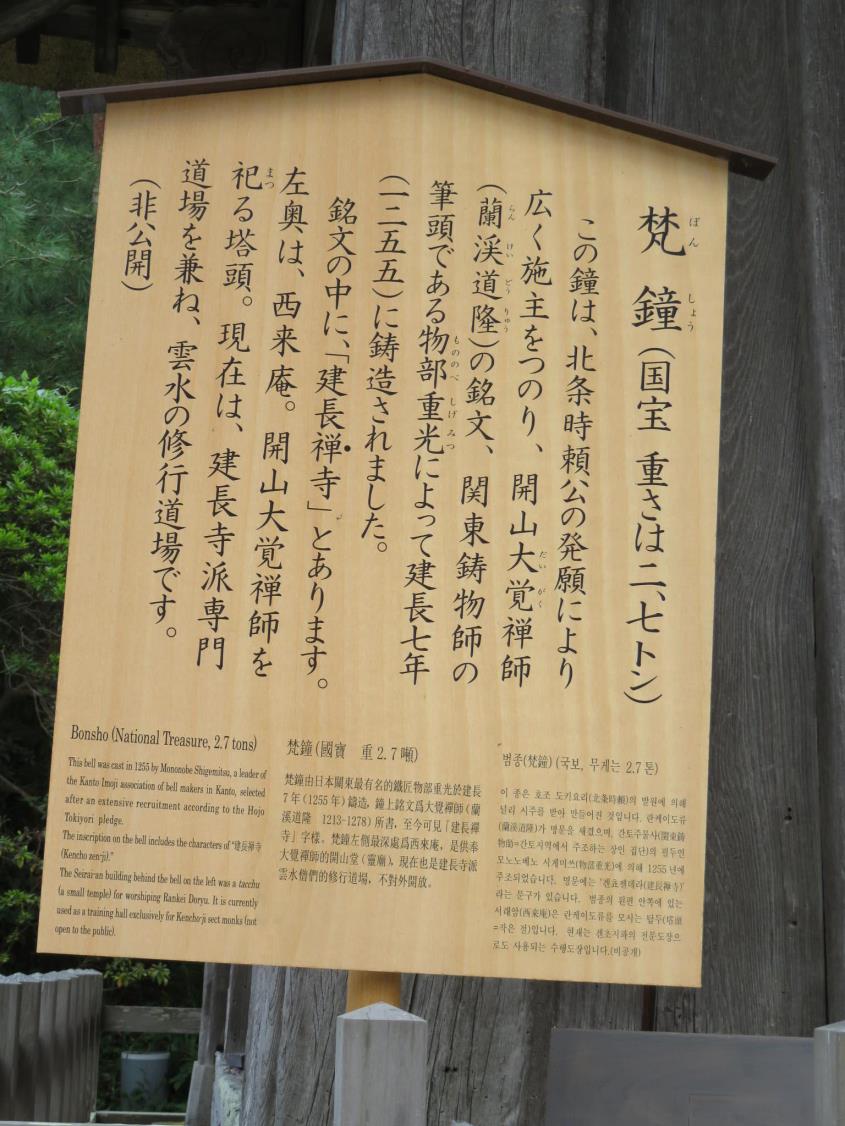 梵鐘(国宝 重さは二、七トン)
ぼん しょう
この鐘は、北条時頼公の発願により
広く施主をつのり、開山大覚禅師
だい がく
(蘭渓道隆)の銘文、関東鋳物師の
らん けい どう りゅう
筆頭である物部重光によって建長七年
もののべ しげ みつ
(一二五五)に鋳造されました。
銘文の中に、「建長禅寺」とあります。
左奥は、西来庵。開山大覚禅師を
祀る塔頭。現在は、建長寺派専門
まつ
道場を兼ね、雲水の修行道場です。
(非公開)
Bonsho (National Treasure, 2.7 tons)
This bell was cast in 1255 by Mononobe Shigemitsu, a leader of
the Kanto Imoji association of bell makers in Kanto, selected
after an extensive recruitment according to the Hojo
Tokiyori pledge.
The inscription on the bell includes the characters of "建長禅寺
(Kencho zen-ji)."
The Seirai-an building behind the bell on the left was a tacchu
(a small temple) for worshiping Rankei Doryu. It is currently
used as a training hall exclusively for Kencho-ji sect monks (not
open to the public).
梵鐘(國寶 重2.7噸)
梵鐘由日本關東最有名的鐵匠物部重光於建長
7年(1255年)鑄造,鐘上銘文爲大覺禪師(蘭
溪道隆 1213-1278)所書,至今可見「建長禪
寺」字樣。梵鐘左側最深處爲西來庵,是供奉
大覺禪師的開山堂(靈廟),現在也是建長寺派
雲水僧們的修行道場,不對外開放。
범종(梵鐘)(국보, 무게는 2.7톤)
이 종은 호조 도키요리(北条時頼)의 발원에 의해
널리 시주를 받아 만들어진 것입니다. 란케이도류
(蘭渓道隆)가 명문을 새겼으며, 간토주물사(関東鋳
物師=간토지역에서 주조하는 장인 집단)의 필두인
모노노베노 시게미쓰(物部重光)에 의해 1255년에
주조되었습니다. 명문에는 '겐쵸젠데라(建長禅寺)'
라는 문구가 있습니다. 범종의 왼편 안쪽에 있는
서래암(西来庵)은 란케이도류를 모시는 탑두(塔頭
=작은 절)입니다. 현재는 겐초지파의 전문도장으
로도 사용되는 수행도장입니다.(비공개)